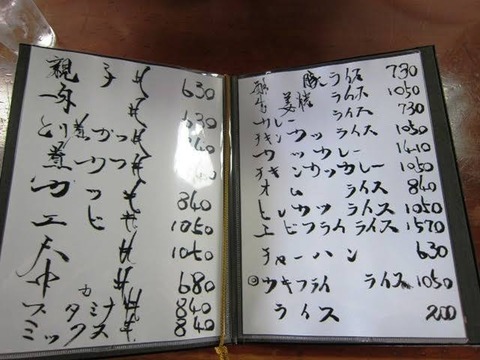 親子丼 630
丼 630
とり煮かつ丼
煮かつ丼
カツ丼 840
エビ丼 1050
天丼 1050
中丼 680
スタミナ丼 840
ミックス丼 840
豚ライス 730
生姜焼ライス 1050
カレーライス 730
チキンカツライス 1050
カツカレー
チキンカツカレー 1050
オムライス 840
ヒレカツライス 1050
エビフライライス 1570
チャーハン 630
カキフライライス 1050
ライス 200